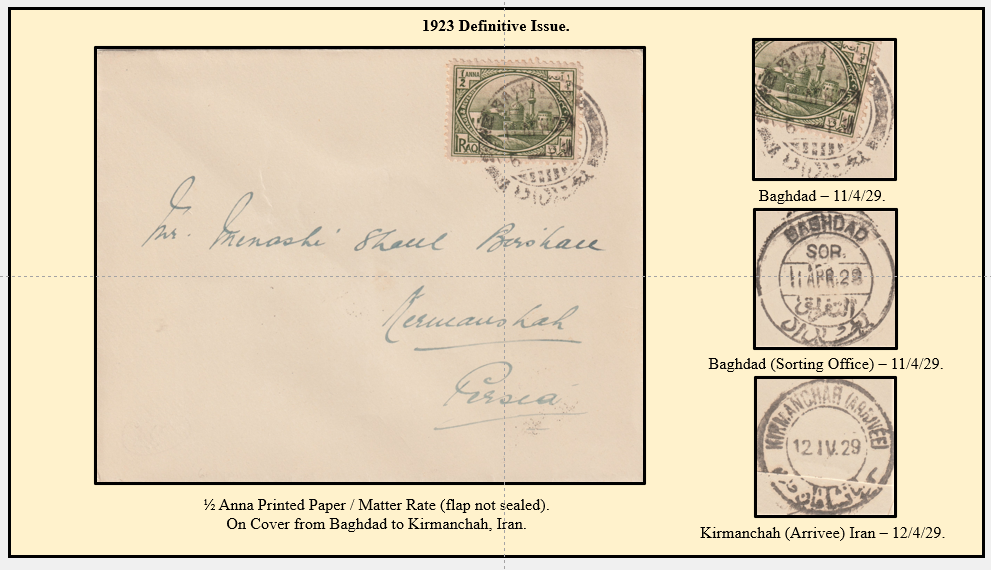 1923 Definitive Issue.
½ ANNA
IRAQ
Mr. Menashi Shaul
Kermanshah
Persia
½ Anna Printed Paper / Matter Rate (flap not sealed).
On Cover from Baghdad to Kirmanchah, Iran.
Baghdad – 11/4/29.
BAGHDAD
SOR.
11 APR. 29
التفريق
بغداد
Baghdad (Sorting Office) – 11/4/29.
KIRMANCHAH (ARRIVÉE)
12.IV.29
Kirmanchah (Arrivee) Iran – 12/4/29.